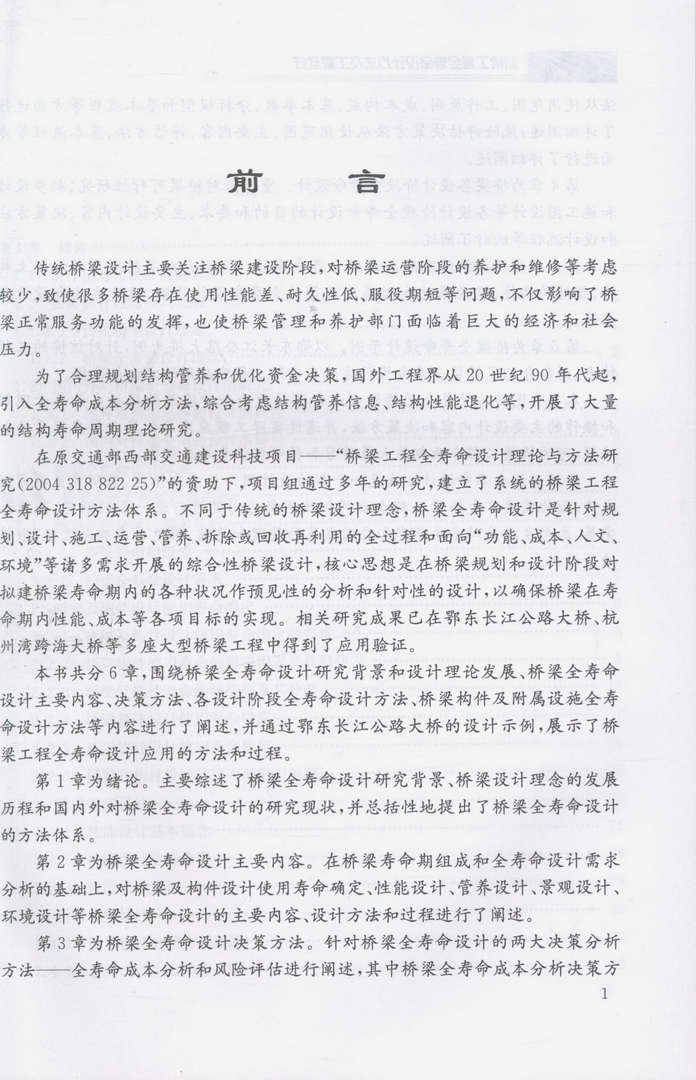 前言
传统桥梁设计主要关注桥梁建设阶段,对桥梁运营阶段的养护和维修等考虑
较少,致使很多桥梁存在使用性能差、耐久性低、服役期短等问题,不仅影响了桥
梁正常服务功能的发挥,也使桥梁管理和养护部门面临着巨大的经济和社会
压力。
为了合理规划结构管养和优化资金决策,国外工程界从 20 世纪 90 年代起,
引入全寿命成本分析方法,综合考虑结构管养信息、结构性能退化等,开展了大量
的结构寿命周期理论研究。
在原交通部西部交通建设科技项目——“桥梁工程全寿命设计理论与方法研
究(2004 318 822 25)”的资助下,项目组通过多年的研究,建立了系统的桥梁工程
全寿命设计方法体系。不同于传统的桥梁设计理念,桥梁全寿命设计是针对规
划、设计、施工、运营、管养、拆除或回收再利用的全过程和面向“功能、成本、人文、
环境”等诸多需求开展的综合性桥梁设计,核心思想是在桥梁规划和设计阶段对
拟建桥梁寿命期内的各种状况作预见性的分析和针对性的设计,以确保桥梁在寿
命期内性能、成本等各项目标的实现。相关研究成果已在鄂东长江公路大桥、杭
州湾跨海大桥等多座大型桥梁工程中得到了应用验证。
本书共分 6 章,围绕桥梁全寿命设计研究背景和设计理论发展、桥梁全寿命
设计主要内容、决策方法、各设计阶段全寿命设计方法、桥梁构件及附属设施全寿
命设计方法等内容进行了阐述,并通过鄂东长江公路大桥的设计示例,展示了桥
梁工程全寿命设计应用的方法和过程。
第 1 章为绪论。主要综述了桥梁全寿命设计研究背景、桥梁设计理念的发展
历程和国内外对桥梁全寿命设计的研究现状,并总括性地提出了桥梁全寿命设计
的方法体系。
第 2 章为桥梁全寿命设计主要内容。在桥梁寿命期组成和全寿命设计需求
分析的基础上,对桥梁及构件设计使用寿命确定、性能设计、管养设计、景观设计、
环境设计等桥梁全寿命设计的主要内容、设计方法和过程进行了阐述。
第 3 章为桥梁全寿命设计决策方法。针对桥梁全寿命设计的两大决策分析
方法——全寿命成本分析和风险评估进行阐述,其中桥梁全寿命成本分析决策方
1